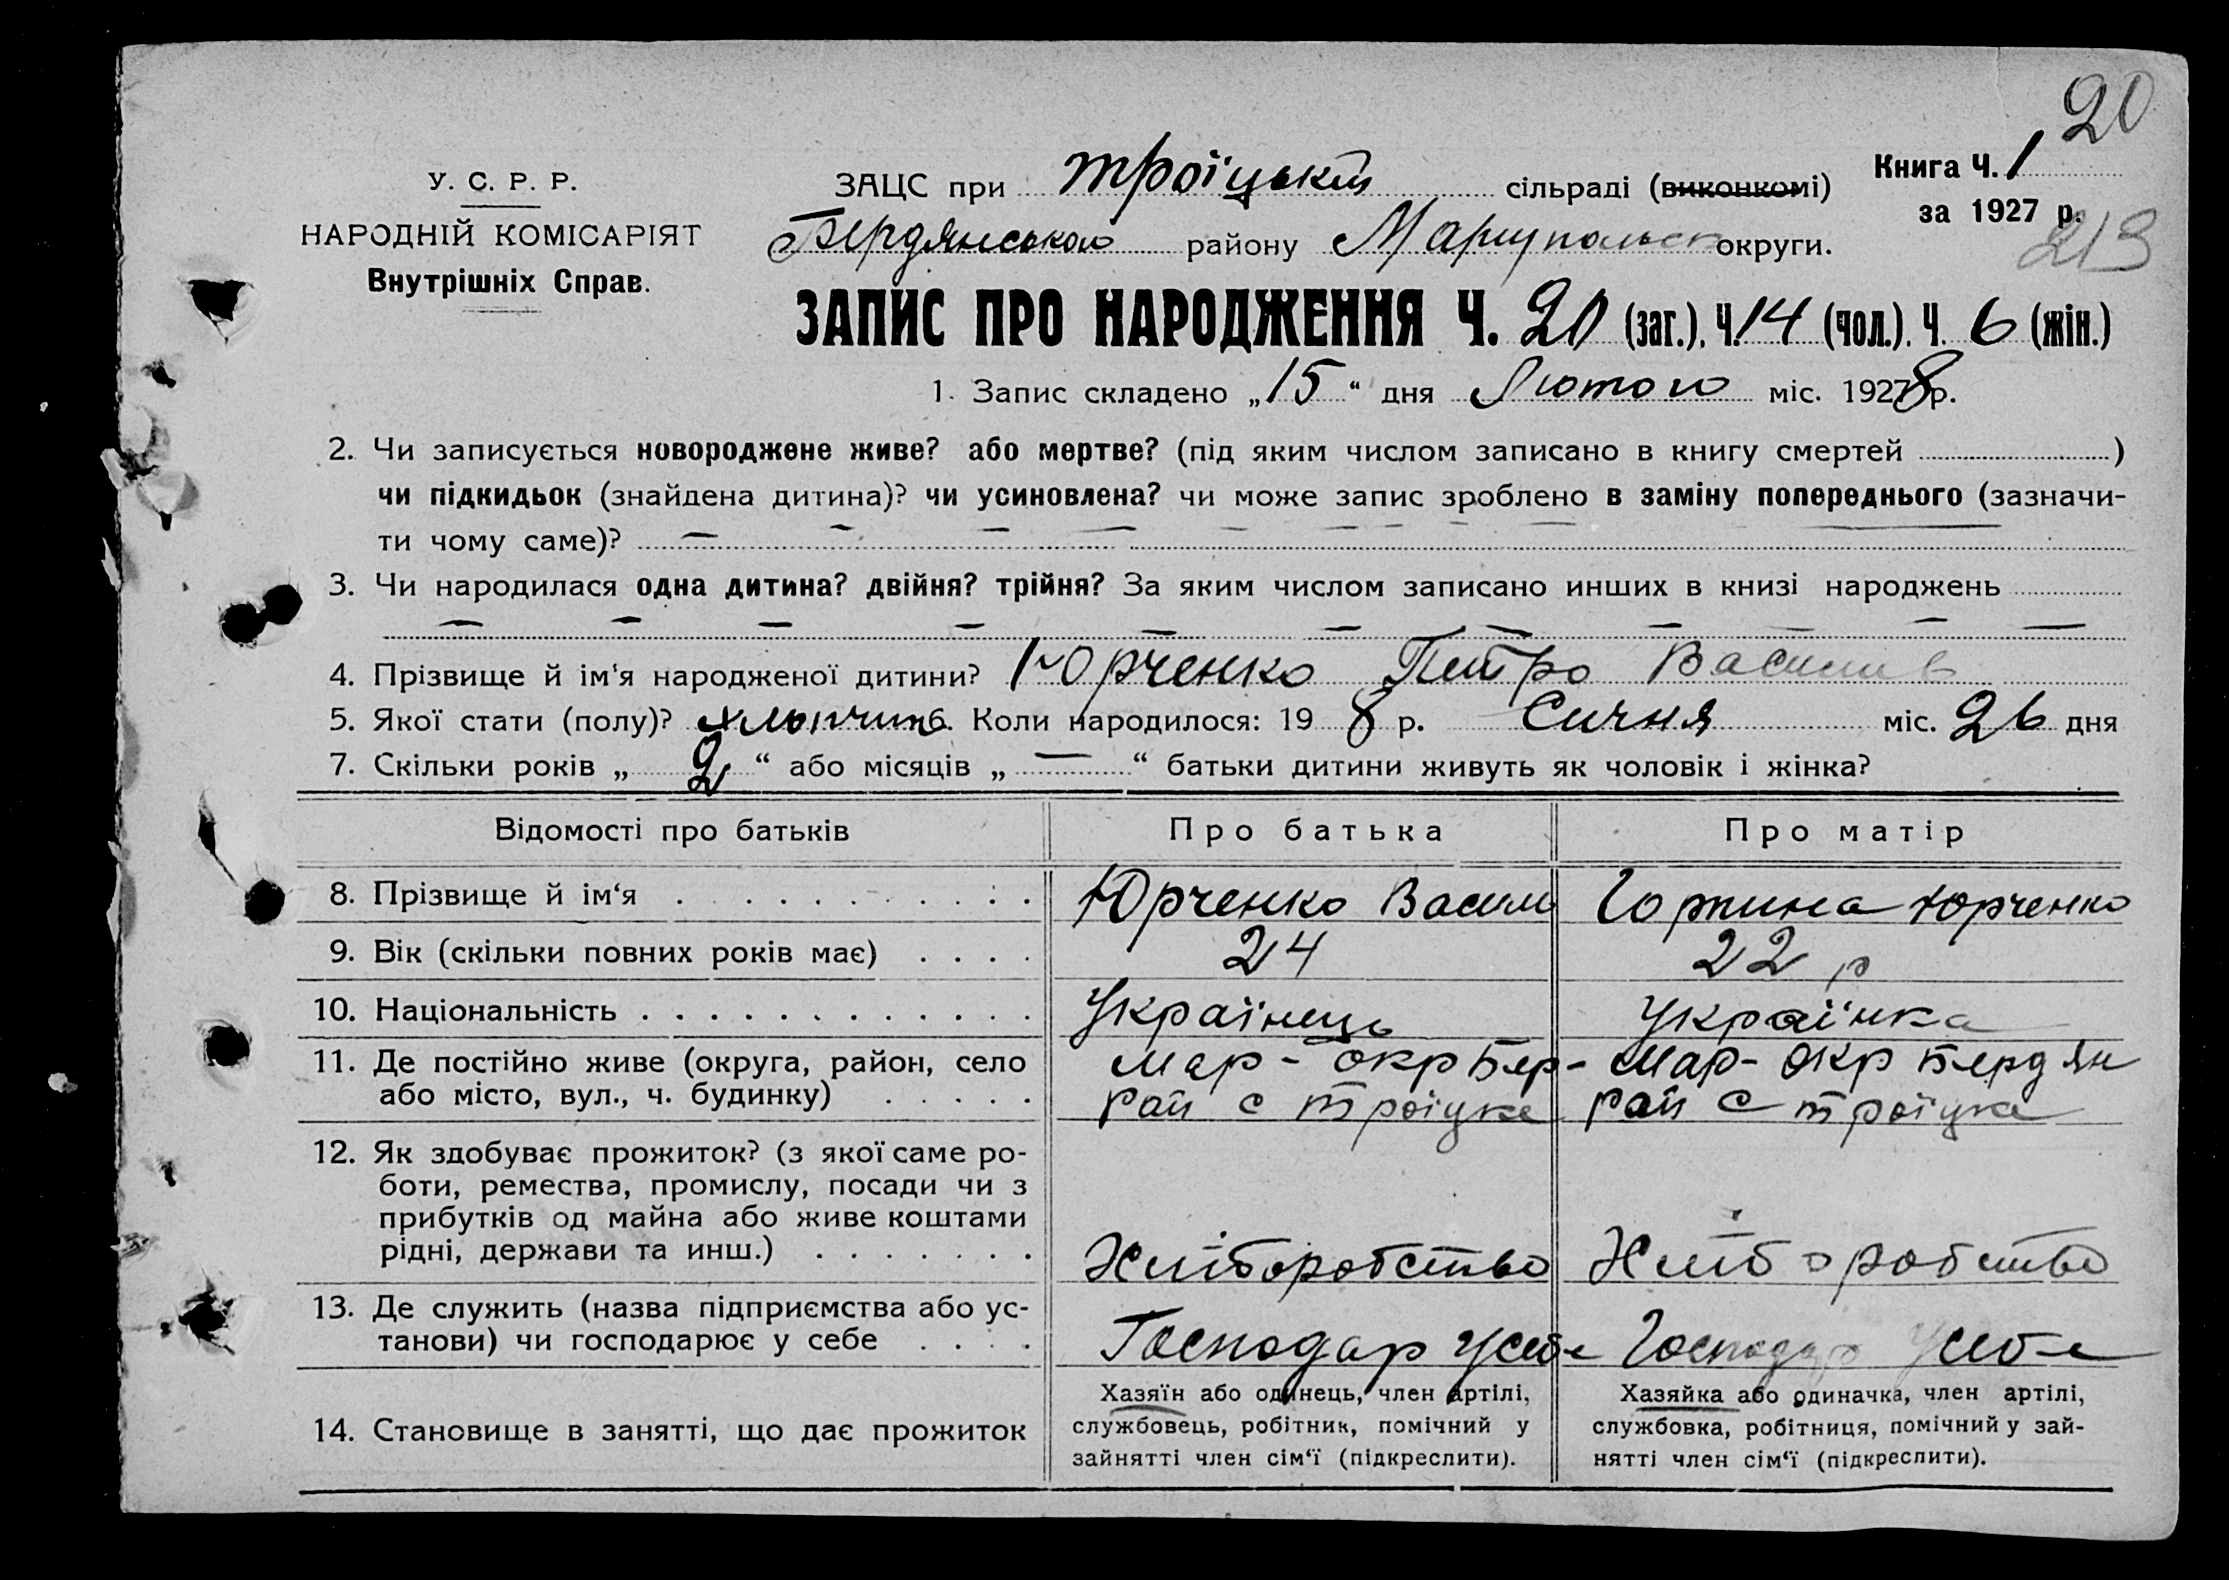 20
У. С. Р. Р.
НАРОДНІЙ КОМІСАРІЯТ
Внутрішніх Справ.
ЗАЦС при Троїцькій сільраді (виконкомі)
Книга Ч. 1
за 1927 р.
Бердянського району Маріупольск округи.
213
ЗАПИС ПРО НАРОДЖЕННЯ Ч. 20 (заг.), Ч. 14 (чол.). Ч. 6 (жін.)
1. Запис складено „15“ дня Лютого міс. 1928 р.
2. Чи записується новороджене живе? або мертве? (під яким числом записано в книгу смертей )
чи підкидьок (знайдена дитина)? чи усиновлена? чи може запис зроблено в заміну попереднього (зазначи-
ти чому саме)? — — — — — — — — — —
3. Чи народилася одна дитина? двійня? трійня? За яким числом записано инших в книзі народжень
— — — — — — — — — — —
4. Прізвище й ім'я народженої дитини? Юрченко Петро Василів
5. Якої стати (полу)? хлопчик 6. Коли народилося: 19 8 р. Січня міс. 26 дня
7. Скільки років „ 2 “ або місяців „ — “ батьки дитини живуть як чоловік і жінка?
Відомості про батьків Про батька Про матір
8. Прізвище й ім'я Юрченко Васил Горпина Юрченко
9. Вік (скільки повних років має) 24 22 р
10. Національність Українець Українка
11. Де постійно живе (округа, район, село Мар - окр Бер- Мар - окр Бердян
або місто, вул., ч. будинку) рай с Троїцке рай с Троїцке
12. Як здобуває прожиток? (з якої саме ро-
боти, ремества, промислу, посади чи з
прибутків од майна або живе коштами
рідні, держави та инш.) Хліборобство Хліборобство
13. Де служить (назва підприємства або ус-
танови) чи господарює у себе Господар усебе Господар усебе
14. Становище в занятті, що дає прожиток
Хазяїн або одинець, член артілі,
службовець, робітник, помічний у
зайнятті член сім'ї (підкреслити).
Хазяйка або одиначка, член артілі,
службовка, робітниця, помічний у зай-
нятті член сім'ї (підкреслити).